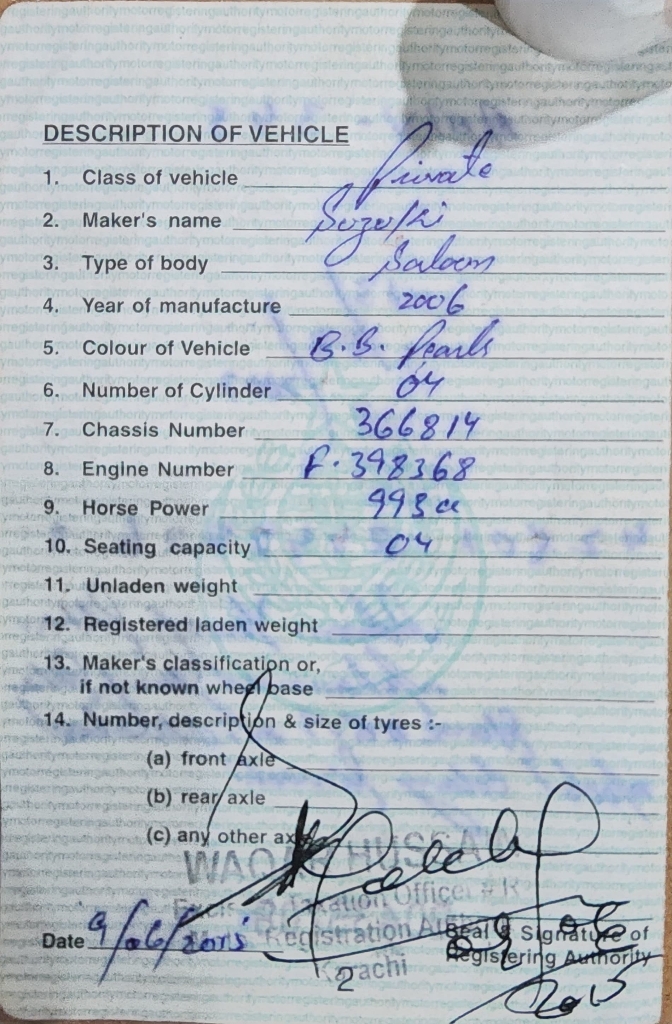 DESCRIPTION OF VEHICLE
1. Class of vehicle Private
2. Maker's name Suzuki
3. Type of body Saloon
4. Year of manufacture 2006
5. Colour of Vehicle B.B. Pearls
6. Number of Cylinder 04
7. Chassis Number 366814
8. Engine Number F.398368
9. Horse Power 993cc
10. Seating capacity 04
11. Unladen weight
12. Registered laden weight
13. Maker's classification or,
if not known wheel base
14. Number, description & size of tyres :-
(a) front axle
(b) rear axle
(c) any other axle
WAQAR HUSSAIN
Taxation Officer # R
Registration
Karachi
Date 9/06/2015
Seal & Signature of
Registering Authority
2015
2